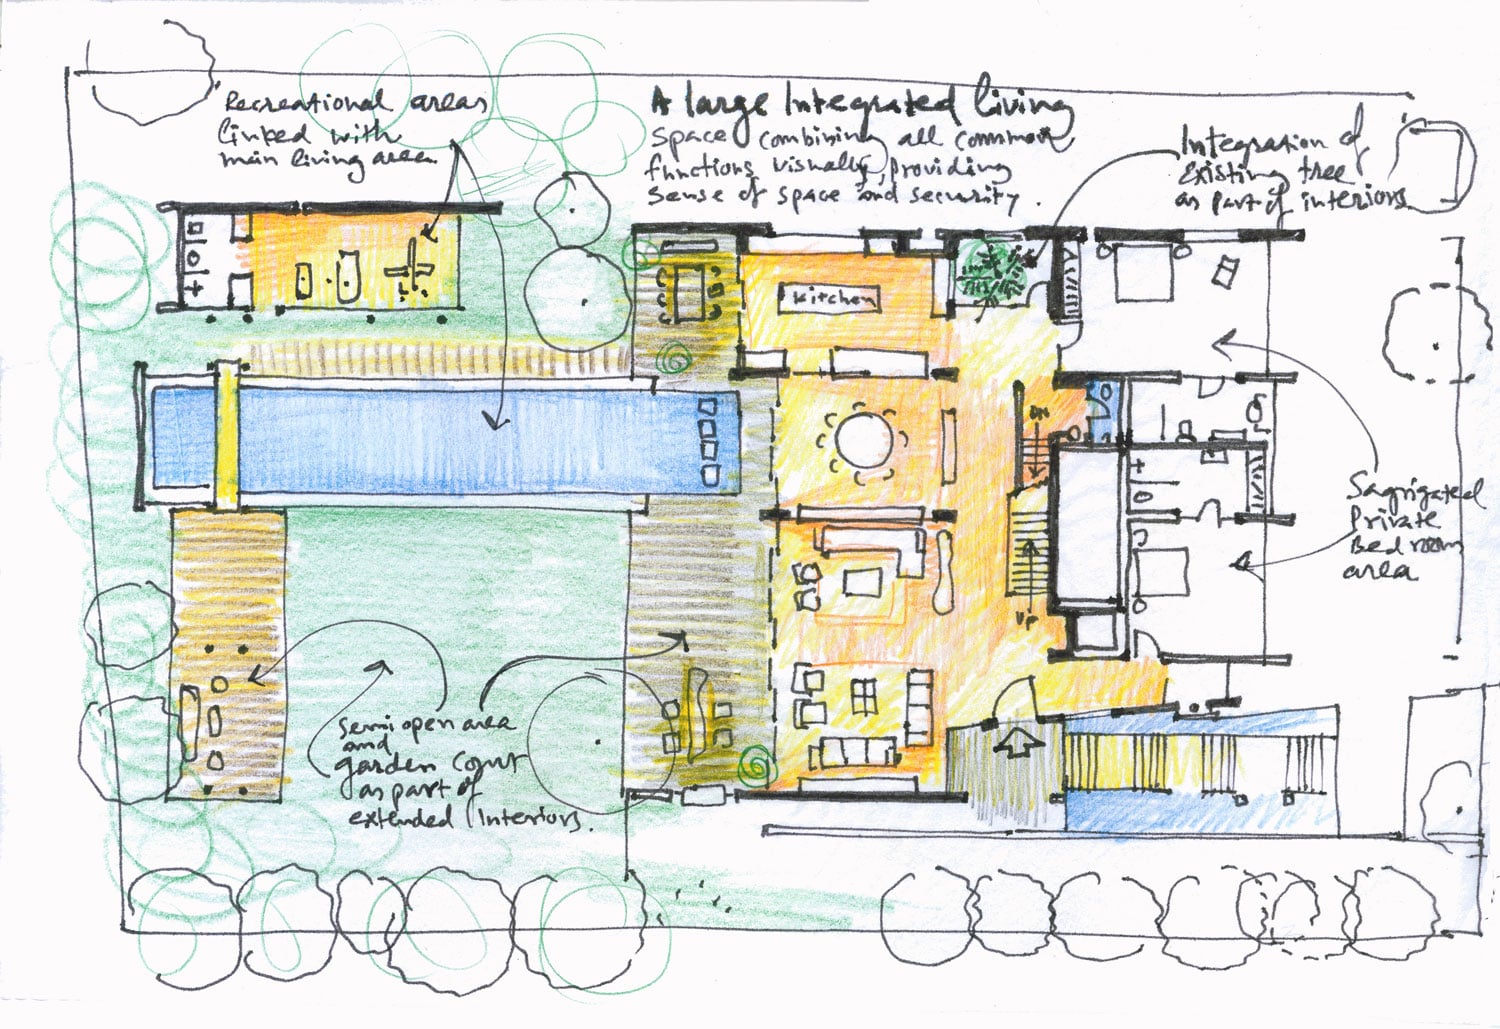 Recreational areas
linked with
main living area
A large Integrated living
space combining all common
functions visually, providing
sense of space and security.
Integration of
Existing tree
as part of interiors
Kitchen
DN
UP
Sagrigated
Private
Bed room
area
Semi open area
and
garden court
as part of
extended Interiors.